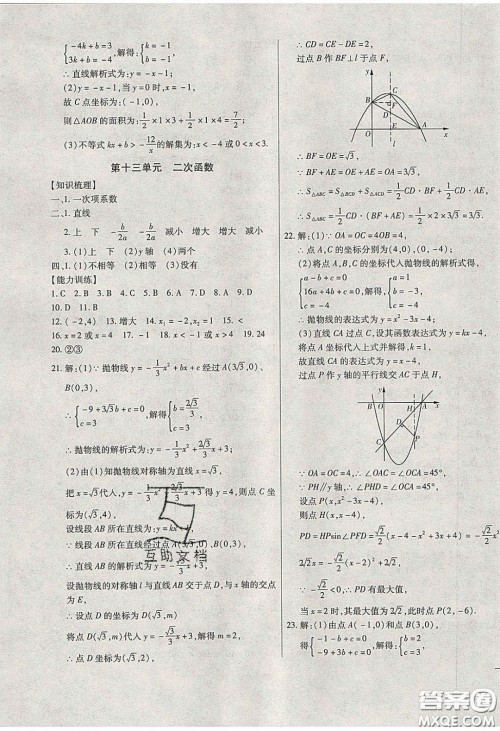 {-4k+b=3, 3k+b=-4, 解得:{k=-1, b=-1.
∴直线解析式为:y=-x-1;
(2)y=-x-1,当y=0时,x=-1,
故C点坐标为(-1,0),
则△AOB的面积为:1/2×1×3+1/2×1×4=7/2;
(3)不等式kx+b>-12/x的解集为:x<-4或0<x<3.
第十三单元 二次函数
【知识梳理】
一、1.一次项系数
二、1.直线
2.上 下 -b/2a -b/2a 减小 增大 增大 减小
3.(1)上 下 (2)y轴 (4)两个
四、1.(1)不相等 (2)相等 (3)没有
【能力训练】
1.C 2.B 3.A 4.D 5.B 6.C 7.A 8.C 9.D
10.D 11.B
12.(-2,4) 13.增大 14.x₁=-2,x₂=1
15.< 16.m>9 17.x<-1或x>4 18.k<4 19.24
20.②③
21.解:(1)∵抛物线y=-1/3x²+bx+c经过A(3√3,0)、
B(0,3),
∴{-9+3√3b+c=0, c=3, 解得{b=2√3/3, c=3.
∴抛物线的解析式为:y=-1/3x²+2√3/3x+3;
(2)由(1)知抛物线对称轴为直线x=√3,
把x=√3代入,y=-1/3x²+2√3/3x+3得,y=4,则点C坐
标为(√3,4),
设线段AB所在直线为:y=kx+b,
∵线段AB所在直线经过点A(3√3,0)、B(0,3),
∴AB的解析式为:y=-√3/3x+3,
∵抛物线的对称轴l与直线AB交于点D,与x轴的交点
为E,
∴设点D的坐标为D(√3,m)
将点D(√3,m)代入y=-√3/3x+3,解得m=2,
∴点D坐标为(√3,2),
∴CD=CE-DE=2,
过点B作BF⊥l于点F,
y
C
B
F
D
O
E
A
x
l
∴BF=OE=√3,
∵BF+AE=OE+AE=OA=3√3,
∴S△ABC=S△BCD+S△ACD=1/2CD·BF+1/2CD·AE,
∴S△ABC=1/2CD(BF+AE)=1/2×2×3√3=3√3.
22.解:(1)∵OA=OC=4OB=4,
∴点A、C的坐标分别为(4,0)、(0,-4);
(2)将点A、B、C代入抛物线的解析式得,
{a-b+c=0, 16a+4b+c=0, c=-4, 解得{a=1, b=-3, c=-4,
∴抛物线的解析式为y=x²-3x-4;
(3)直线CA过点C,设其函数表达式为y=kx-4,
将点A坐标代入上式并解得:k=1,
故直线CA的表达式为y=x-4,
过点P作y轴的平行线交AC于点H,
y
B
O
A
x
H
D
C
P
∵OA=OC=4,∴∠OAC=∠OCA=45°,
∵PH∥y轴,∴∠PHD=∠OCA=45°,
设点P(x,x²-3x-4),
则点H(x,x-4),
∵-√2/2<0,∴PD有最大值,
当x=2时,其最大值为2√2,此时点P(2,-6).
23.解:(1)由点A(-1,0)和点B(3,0),
得{-1-b+c=0, -9+3b+c=0, 解得{b=2, c=3,
互助文档
答案圈
MXQE.COM